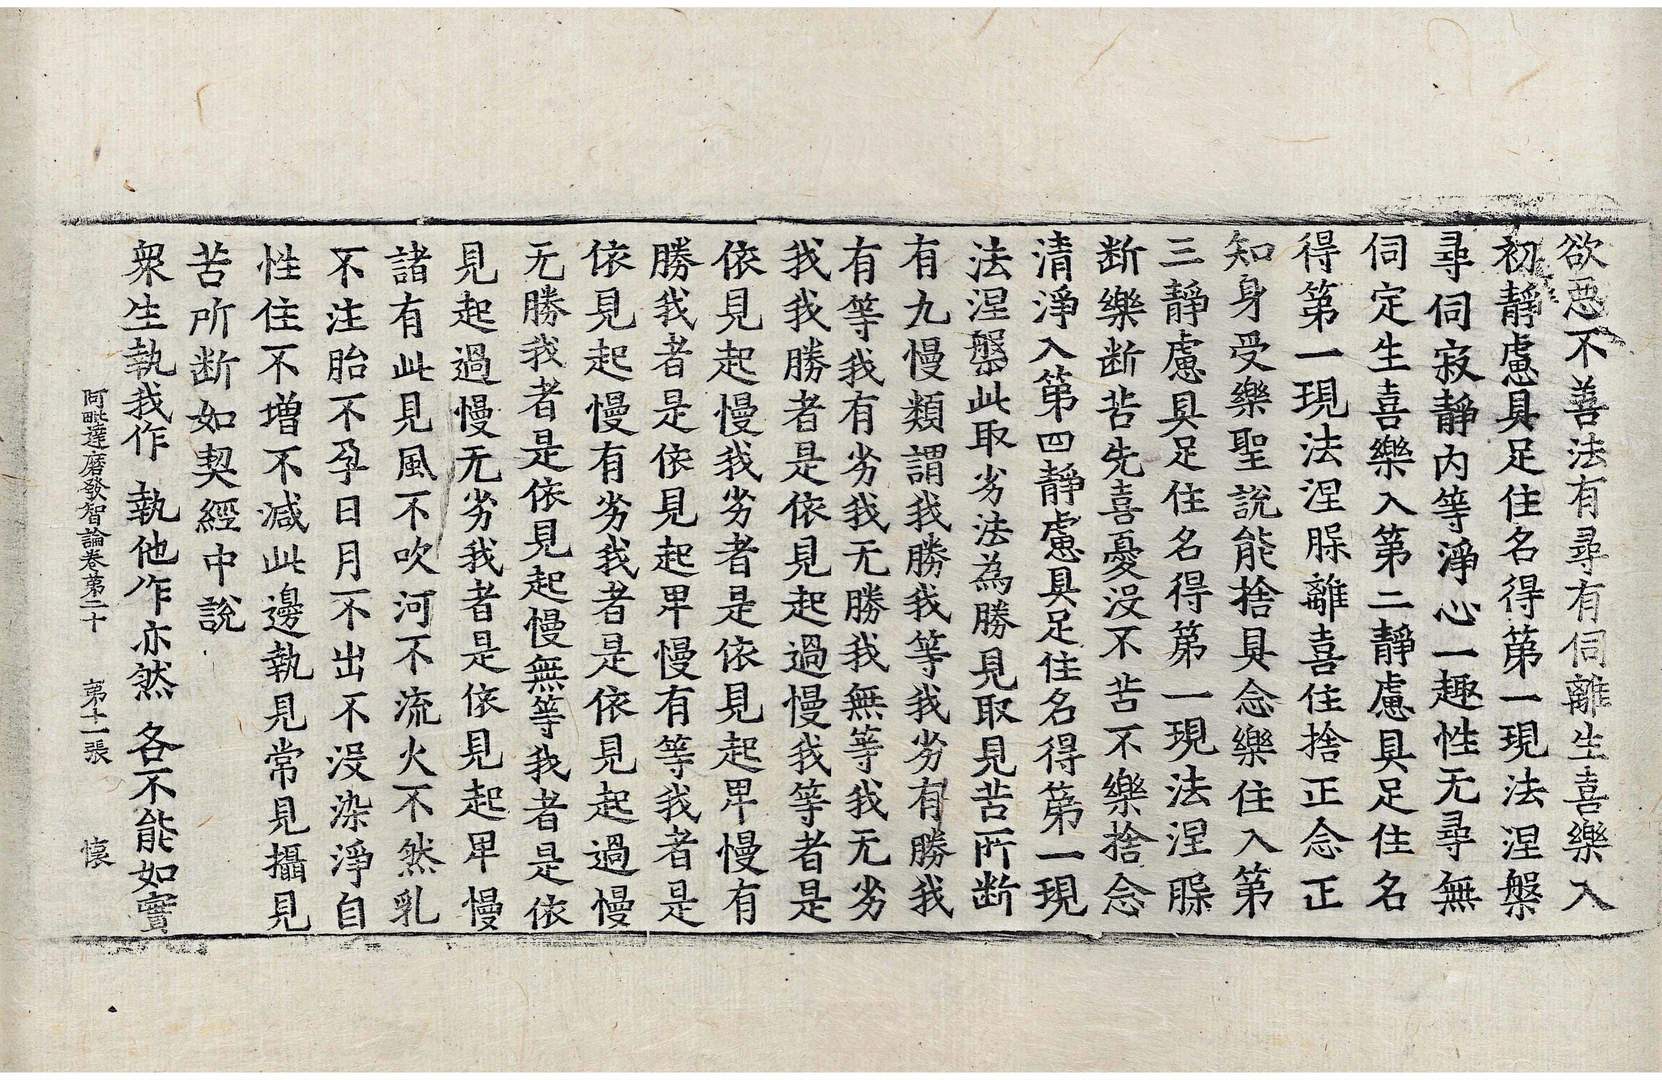 欲惡不善法有尋有伺離生喜樂入
初靜慮具足住名得第一現法涅槃
尋伺寂靜內等淨心一趣性无尋無
伺定生喜樂入第二靜慮具足住名
得第一現法涅槃離喜住捨正念正
知身受樂聖說能捨具念樂住入第
三靜慮具足住名得第一現法涅槃
断樂断苦先喜憂没不苦不樂捨念
清淨入第四靜慮具足住名得第一現
法涅槃此取劣法為勝見取見苦所断
有九慢類謂我勝我等我劣有勝我
有等我有劣我无勝我無等我无劣
我我勝者是依見起過慢我等者是
依見起慢我劣者是依見起卑慢有
勝我者是依見起卑慢有等我者是
依見起慢有劣我者是依見起過慢
无勝我者是依見起慢無等我者是依
見起過慢无劣我者是依見起卑慢
諸有此見風不吹河不流火不然乳
不注胎不孕日月不出不没染淨自
性住不增不減此邊執見常見攝見
苦所断如契經中說
衆生執我作 執他作亦然 各不能如實
阿毗達磨發智論卷第二十 第十一張 懷